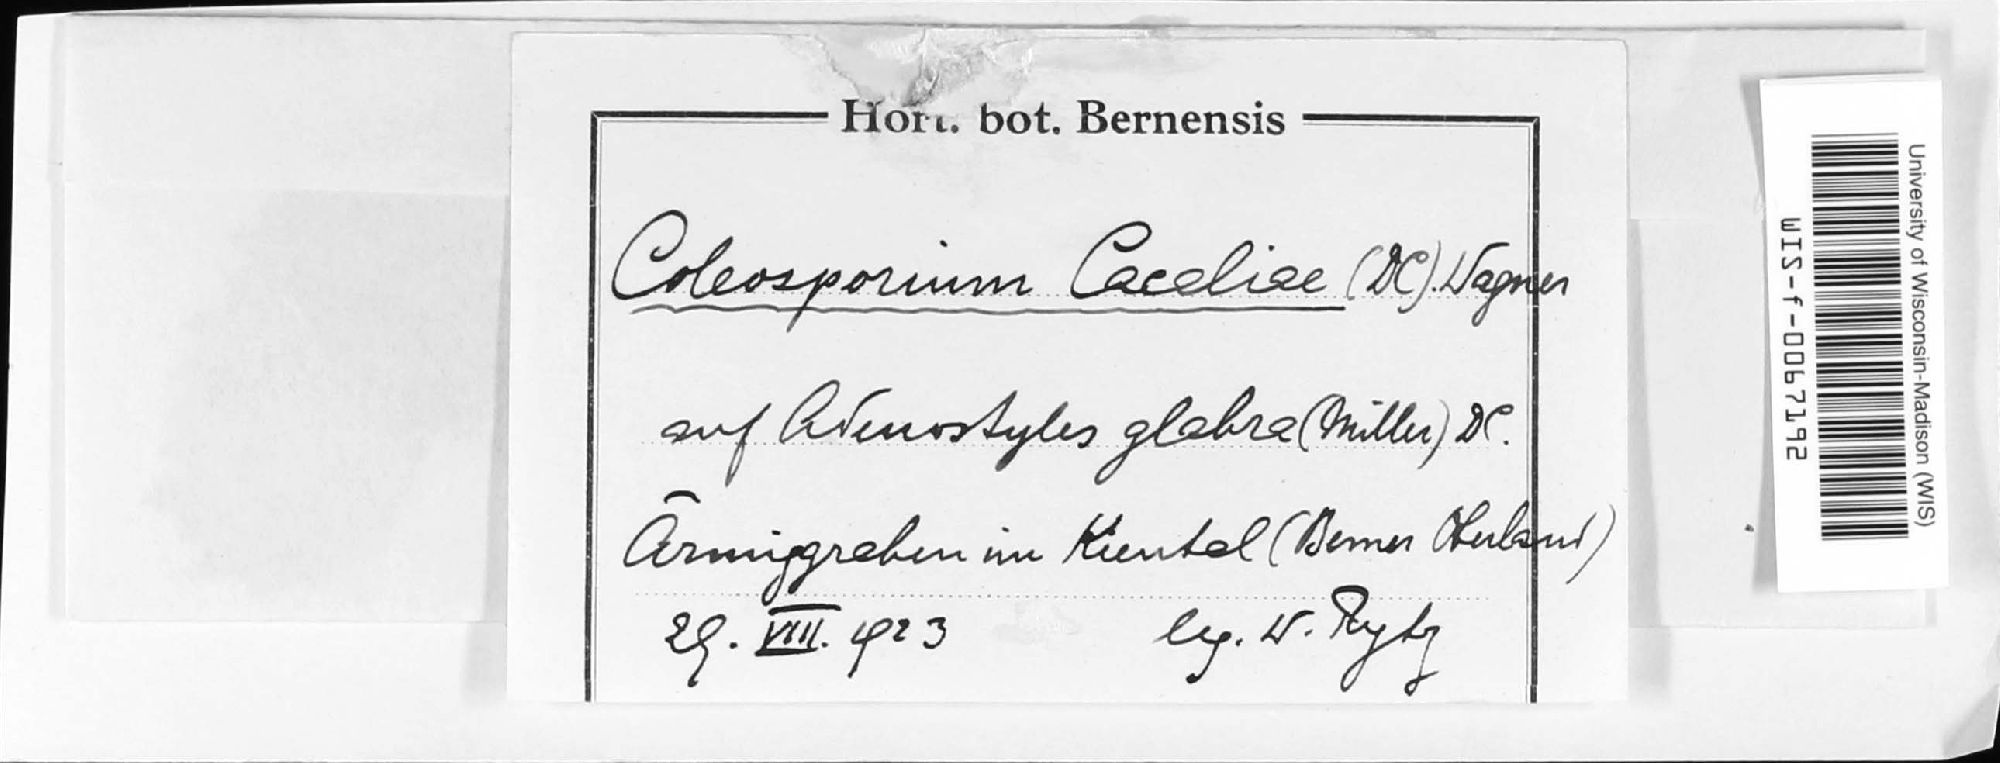 Hort. bot. Bernensis
Coleosporium Cacaliae (DC). Wagner
auf Adenostyles glabra (Miller) DC.
Ärmiggraben im Kiental (Berner Oberland)
29. VIII. 1923 leg. W. Rytz
University of Wisconsin-Madison (WIS)
WIS-f-0067192